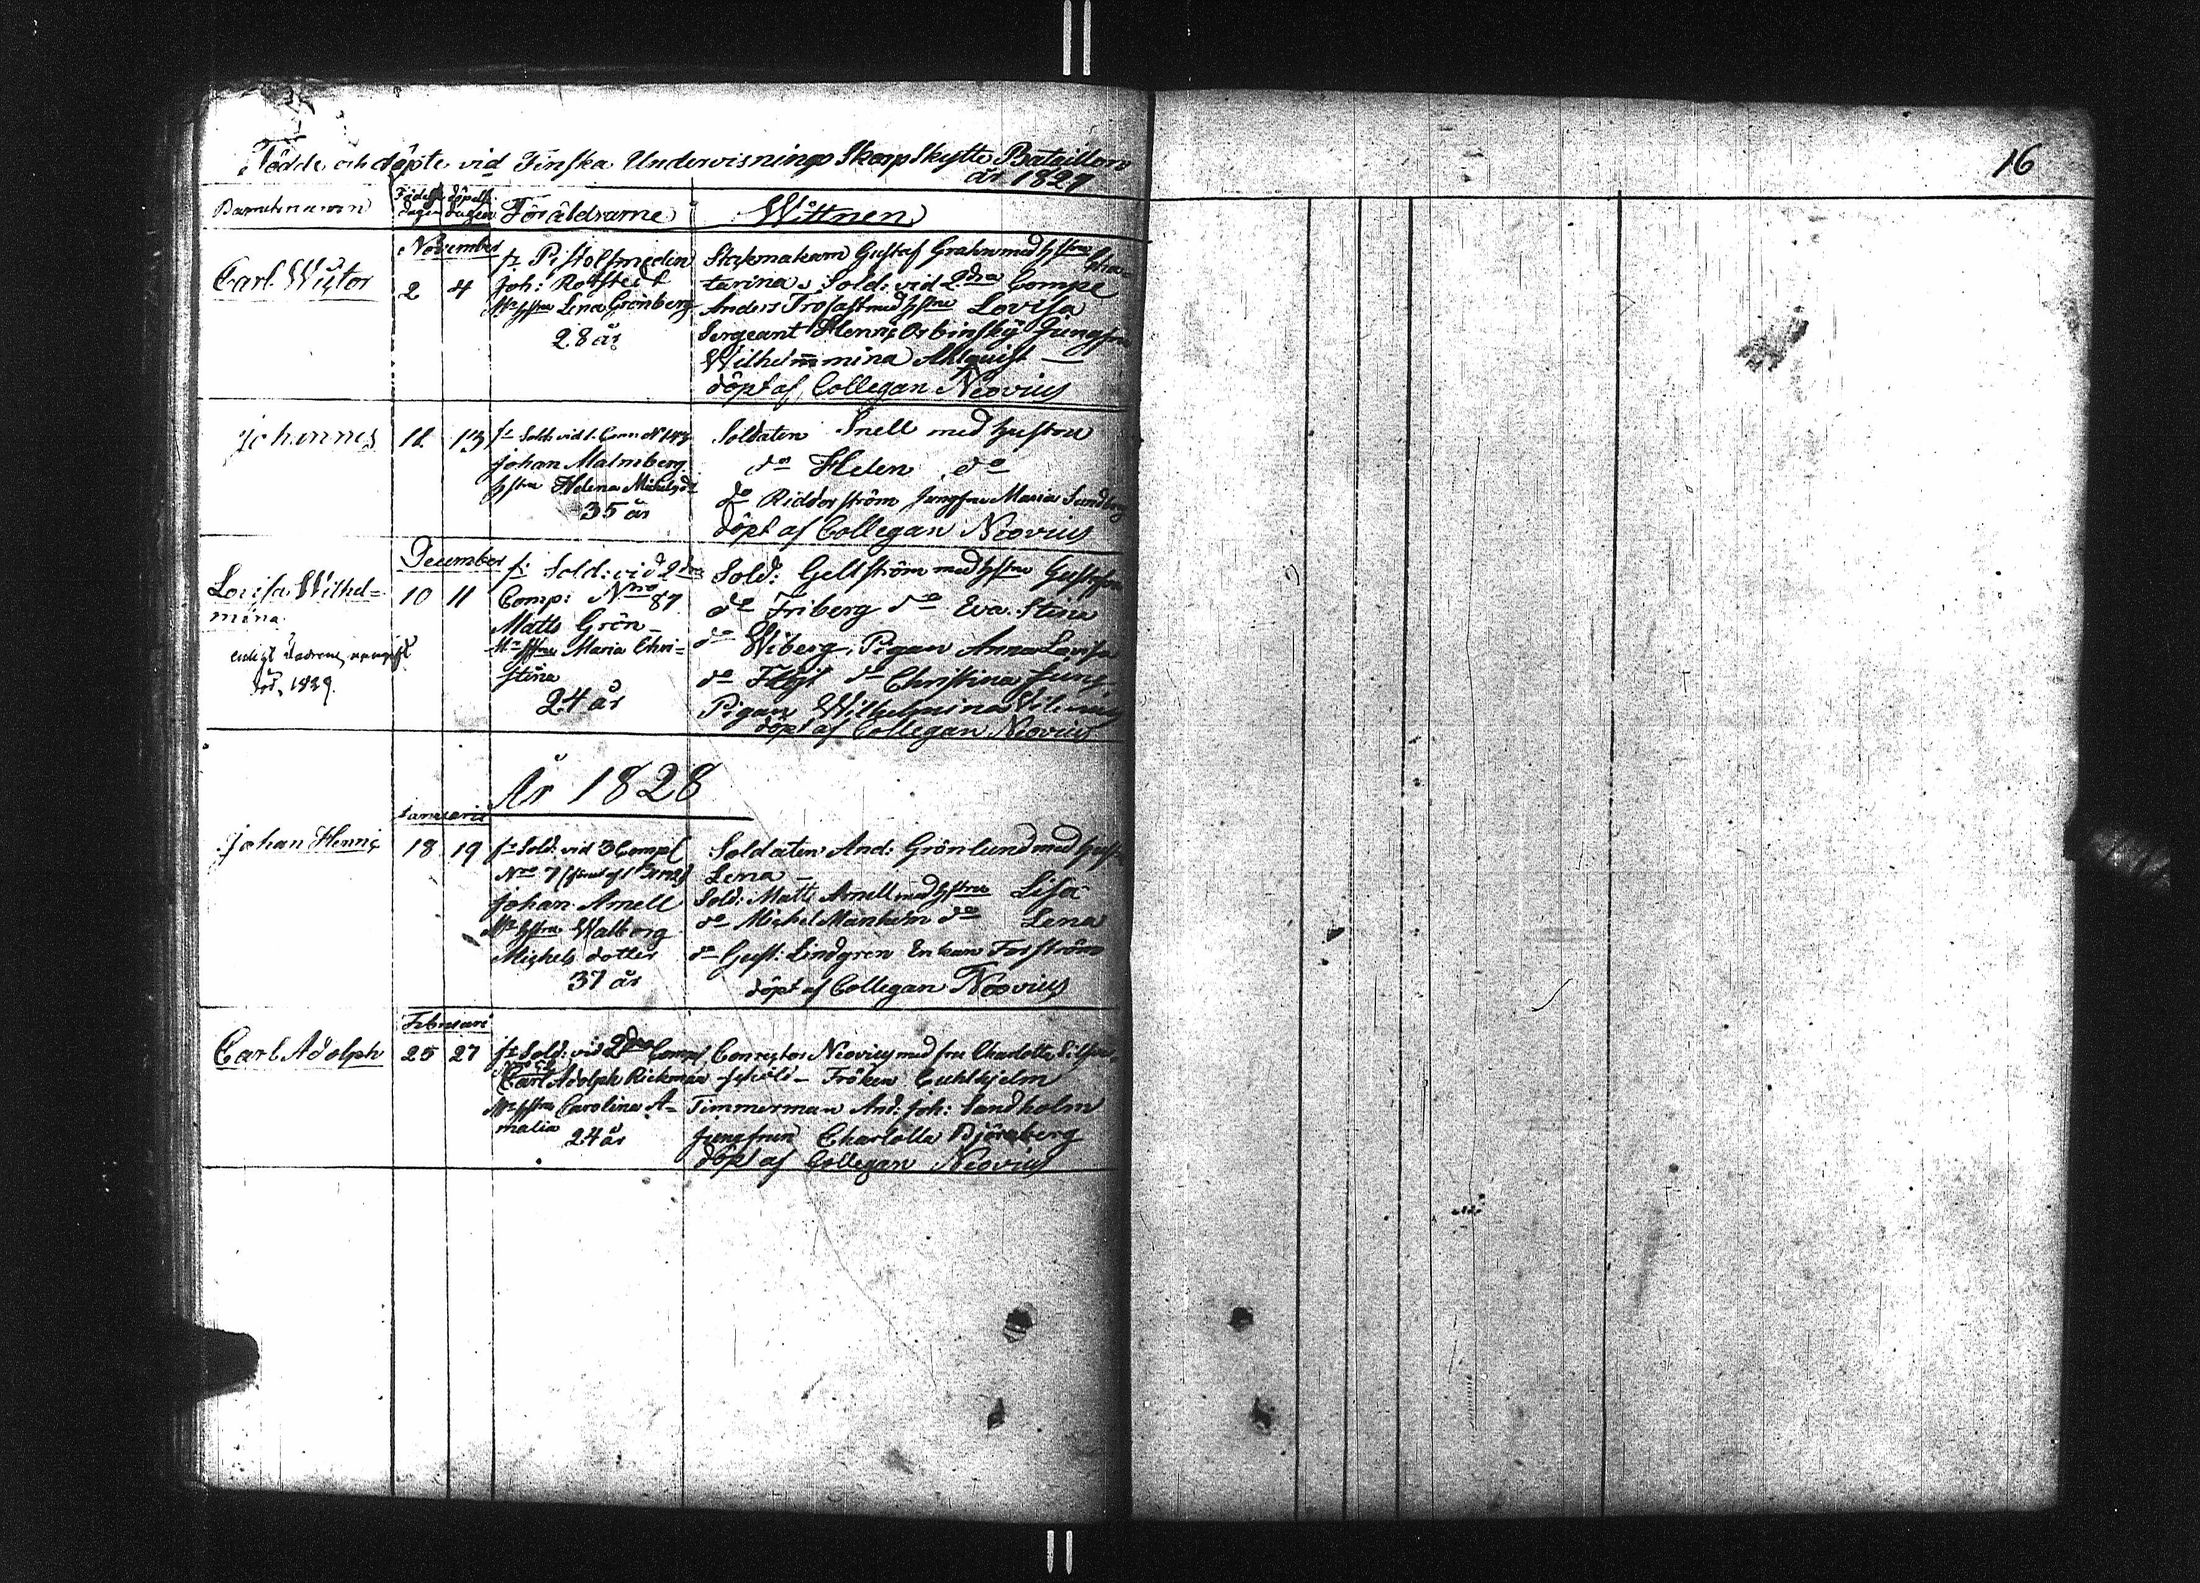 Födde och döpte vid Finska Undervisnings Skarp Skytte Bataillon
år 1827
16
Barnets namn
Födelse dagen
döpelse dagen
Föräldrarne
Wittnen
November
Carl Wictor
2 4
fr Pistolsmeden
Joh: Rotstedt
Mr hstru Lena Grönberg
28 år
Stakmakarn Gustaf Grahn med hstru Cha-
tarina, Sold: vid 2dra Compe
Anders Trofast med hstru Lovisa
Sergeant Henric Osbinsky Jungfru
Wilhelmmina Ahlquist
döpt af Collegan Neovius
Johannes
12 13
fr Sold: vid 1. Com: N 143
Johan Malmberg
hstru Helena Michelsdr
35 år
Soldaten Snell med hustru
do Helen do
do Ridderström Jungfru Maria Sundberg
döpt af Collegan Neovius
December
Lovisa Wilhel=
mina
enligt
död 1829.
10 11
fr Sold: vid 2dra
Comp: Nro 87
Matts Grön
Mr hstru Maria Chri=
stina
24 år
Sold: Geltström med hstru Gustafva
do Friberg do Eva Stina
do Wiberg, Pigan Anna Lovisa
do Flygt do Christina Ljung
Pigan Wilhelmina
döpt af Collegan Neovius
År 1828
Januarii
Johan Henric
18 19
fr Sold: vid 3 Comp
Nro 7
Johan Arnell
Mr hstru Walborg
Michels dotter
37 år
Soldaten And: Grönlund med hust:
Lena
Sold: Matts Arnell med hstru Lisa
do Michel Manholm do Lena
do Gust: Lindgren Enkan Forström
döpt af Collegan Neovius
Februari
Carl Adolph
25 27
fr Sold: vid 2dra Comp
Carl Adolph Rickman
Mr hstru Carolina A-
malia
24 år
Conrector Neovius med fru Charlotta Lilljen-
sköld – Fröken Cuhlhjelm
Timmerman And: Joh: Sandholm
Jungfrun Charlotta Björnberg
döpt af Collegan Neovius